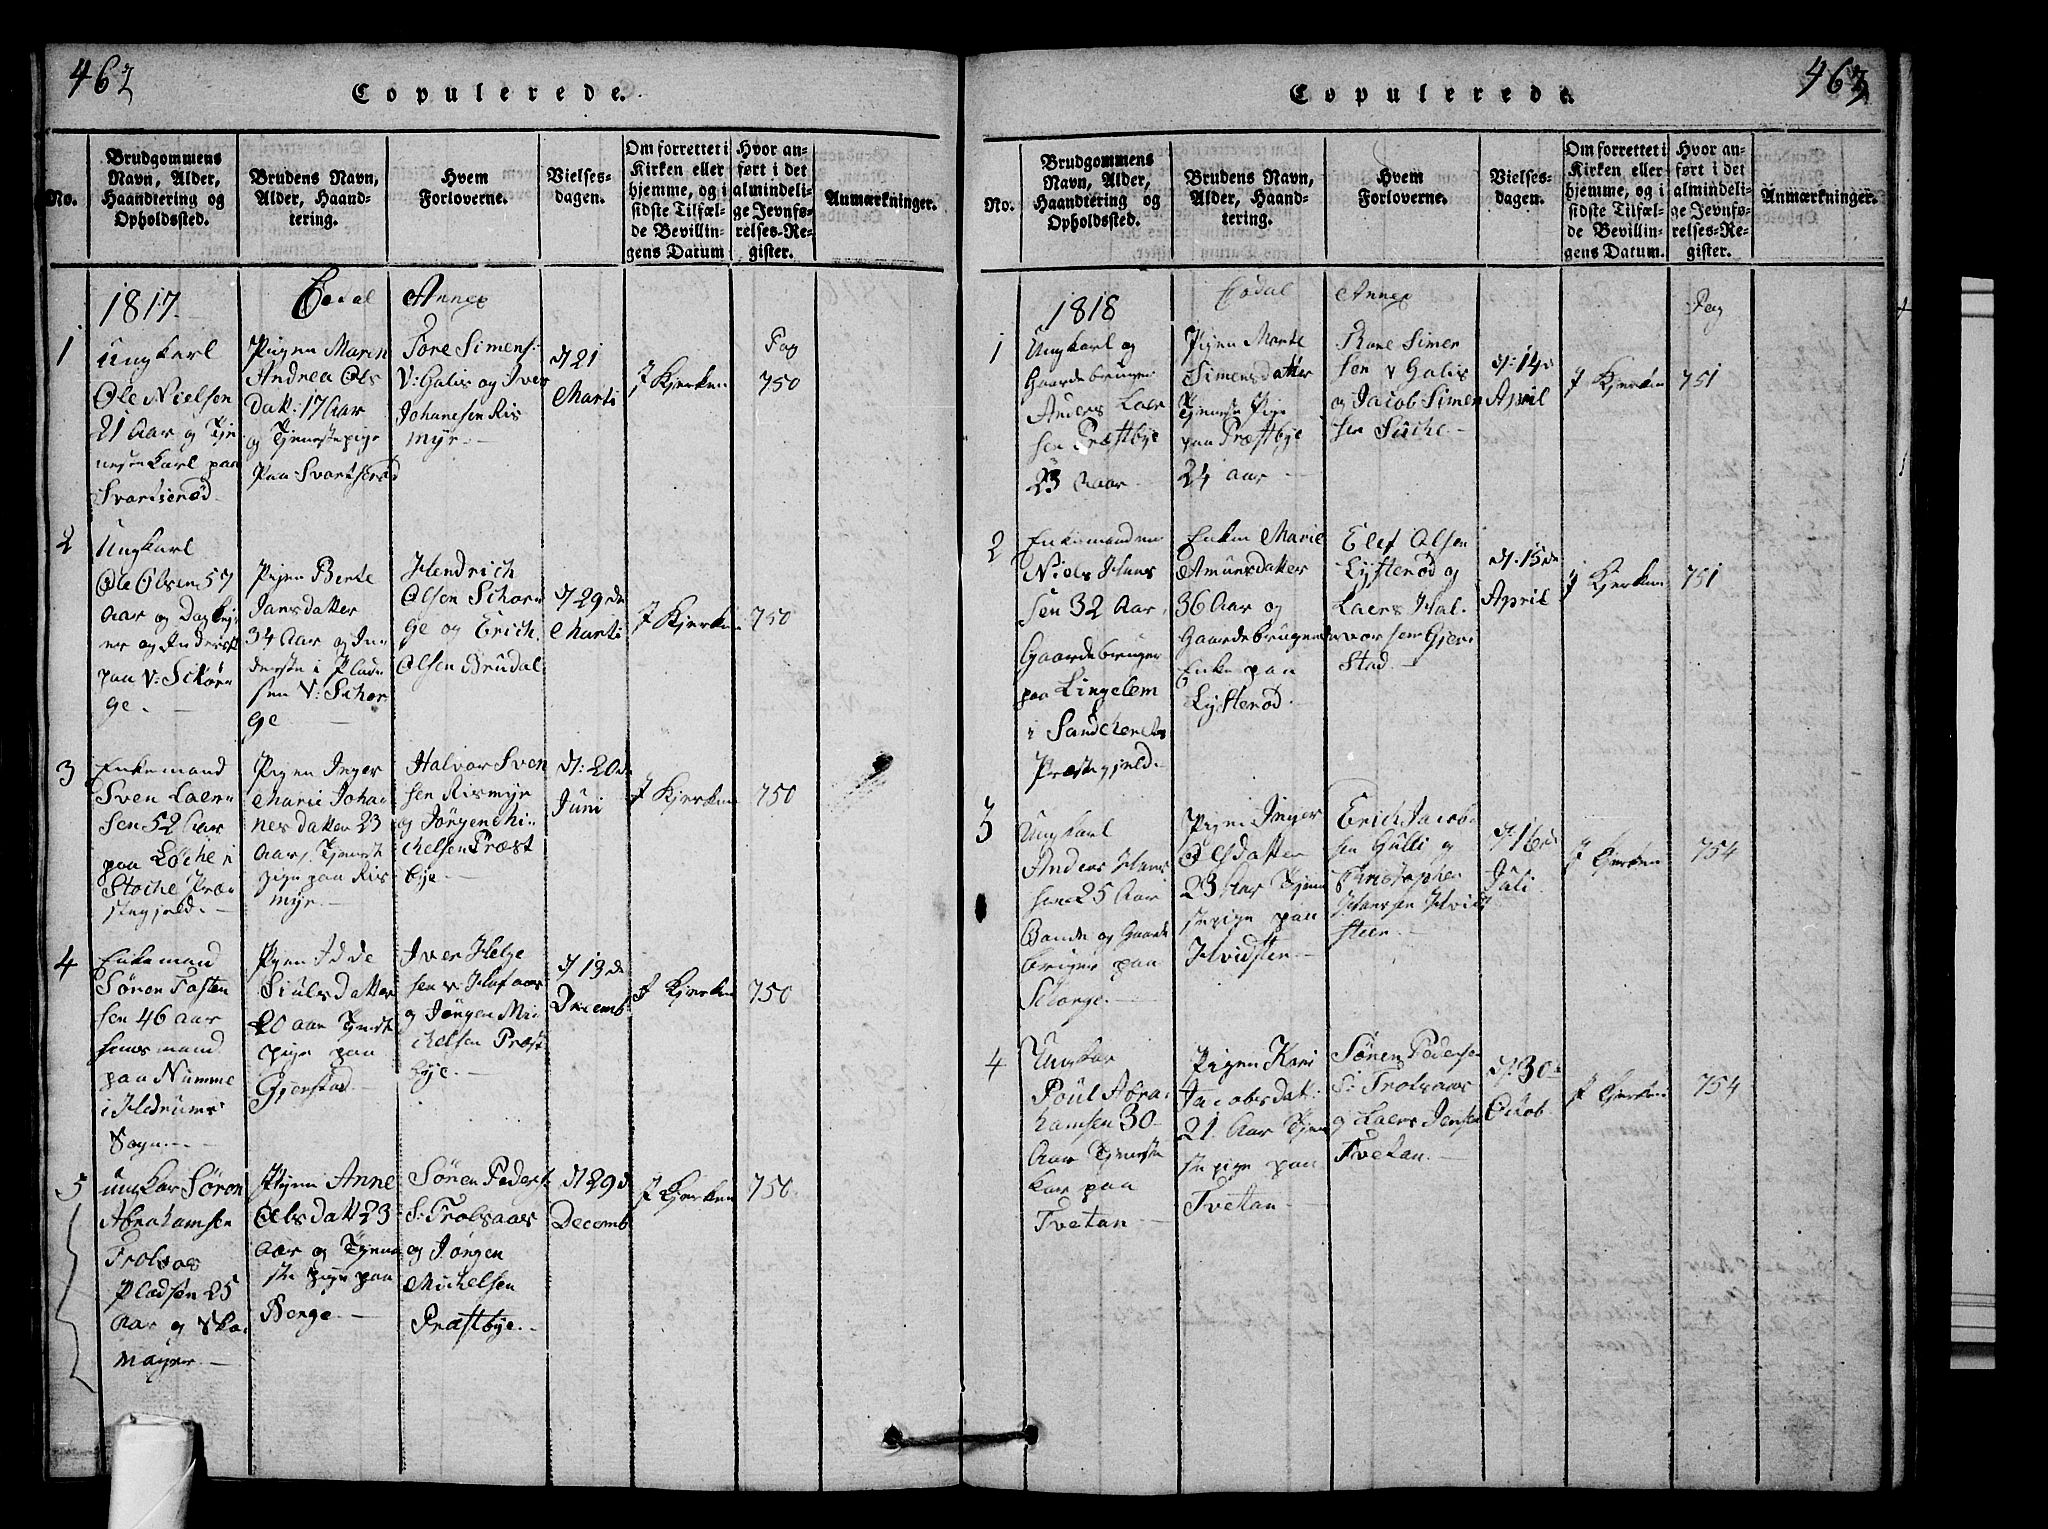 462
Copulerede.
No.
Brudgommens
Navn, Alder,
Haandtering og
Opholdssted.
Brudens Navn,
Alder, Haand-
tering.
Hvem
Forloverne.
Vielses-
dagen.
Om forrettet i
Kirken eller
hjemme, og i
sidste Tilfæl-
de Bevillin-
gens Datum
Hvor an-
ført i det
almindeli-
ge Jevnfø-
relses-Re-
gister.
Anmærkninger.
1817
Eodal
Annex
1
Ungkarl
Ole Nielsen
21 Aar og Tje
nesteKarl paa
Svartserød
Pigen Maren
Andrea Ols
Dat: 17 Aar
og Tjenestepige
paa Svartserød
Tore Simens:
V: Galis og Iver
Johanesen Ris
myr.
d 21
Marti
I Kjerken
Pag
750
2
Ungkarl
Ole Olsen 57
Aar og
og Inderst
paa V: Skør-
ge.
Pigen Berte
Jansdatter
34 Aar og In
derste i Plad
sen V: Schor
ge
Hendrich
Olsen Schor-
ge og Erich
Olsen Brudal
d 29de
Marti
I Kjerken
750
3
Enkemand
Sven Laer-
sen 52 Aar
paa Løche i
Stoche Præ-
stegjeld.
Pigen Inger
Marie Joha-
nes datter 23
Aar, Tjenest
pige paa Ris
myr.
Halvor Sven
sen Rismyr
og Jørgen Mi-
chelsen Præst
bye
d: 20de
Juni
I Kjerken
750
4
Enkemand
Søren Tosten
sen 46 aar
mand
paa Numme
i Hedrums
Sogn.
Pigen Idde
datter
20 aar Tjenest
pige paa
Gjerstad.
Iver Helge
sen v:
og Jørgen Mi-
chelsen Præst
bye.
d 19de
Decemb:
I Kjerken
750
5
Ungkar Søren
Abrahamsen
Trolsaas
Pladsen 25
Aar og Sko-
mager.
Pigen Anne
Olsdatt 23
aar og Tjene
ste pige paa
Berge.
Søren Peders
S: Trolsaas
og Jørgen
Michelsen
Præstbye.
d 29d
Decemb
I Kjerken
750
463
Copulerede.
No.
Brudgommens
Navn, Alder,
Haandtering og
Opholdssted.
Brudens Navn,
Alder, Haand-
tering.
Hvem
Forloverne.
Vielses-
dagen.
Om forrettet i
Kirken eller
hjemme, og i
sidste Tilfæl-
de Bevillin-
gens Datum.
Hvor an-
ført i det
almindeli-
ge Jevnfø-
relses-Re-
gister.
Anmærkninger.
1818
Eodal
Annex
Pag
1
Ungkarl og
Gaardebruger
Anders Laer
sen Præstbye
23 Aar
Pigen Marte
Simensdatter
Tjeneste Pige
paa Præstbye
24 aar
Thore Simen
sen v Galis
og Jacob Simen
sen
d: 14de
April
I Kjerken
751
2
Enkemanden
Niels Hans
sen 32 Aar
Gaardebruger
paa Lingelem
i Sandeherets
Præstegjeld.
Enken Marie
Amunsdatter
36 Aar og
Gaardebrugen
Enke paa
Lysterød.
Elef Olsen
Lysterød og
Laers Hal-
vorsen Gjer-
stad.
d: 15de
April
I Kjerken
751
3
Ungkarl
Anders Hans
sen 25 Aar
Bonde og Gaarde
bruger paa
Schorge.
Pigen Inger
Olsdatter
23 Aar Tjene
stepige paa
Hvidsten.
Erich Jacob-
sen Gulli og
Christopher
Hansen Hvid
steen.
d: 16de
Juli
I Kjerken
754
4
Ungkar
Poul Abra
hamsen 30
Aar Tjeneste
Kar paa
Tvetan
Pigen Kari
Jacobsdat:
21 Aar Tjene
ste pige paa
Tvetan
Søren Pedersen
S: Trolsaas
og Laers Jensen
Tvetan.
d: 30
Octob
I Kjerken
754